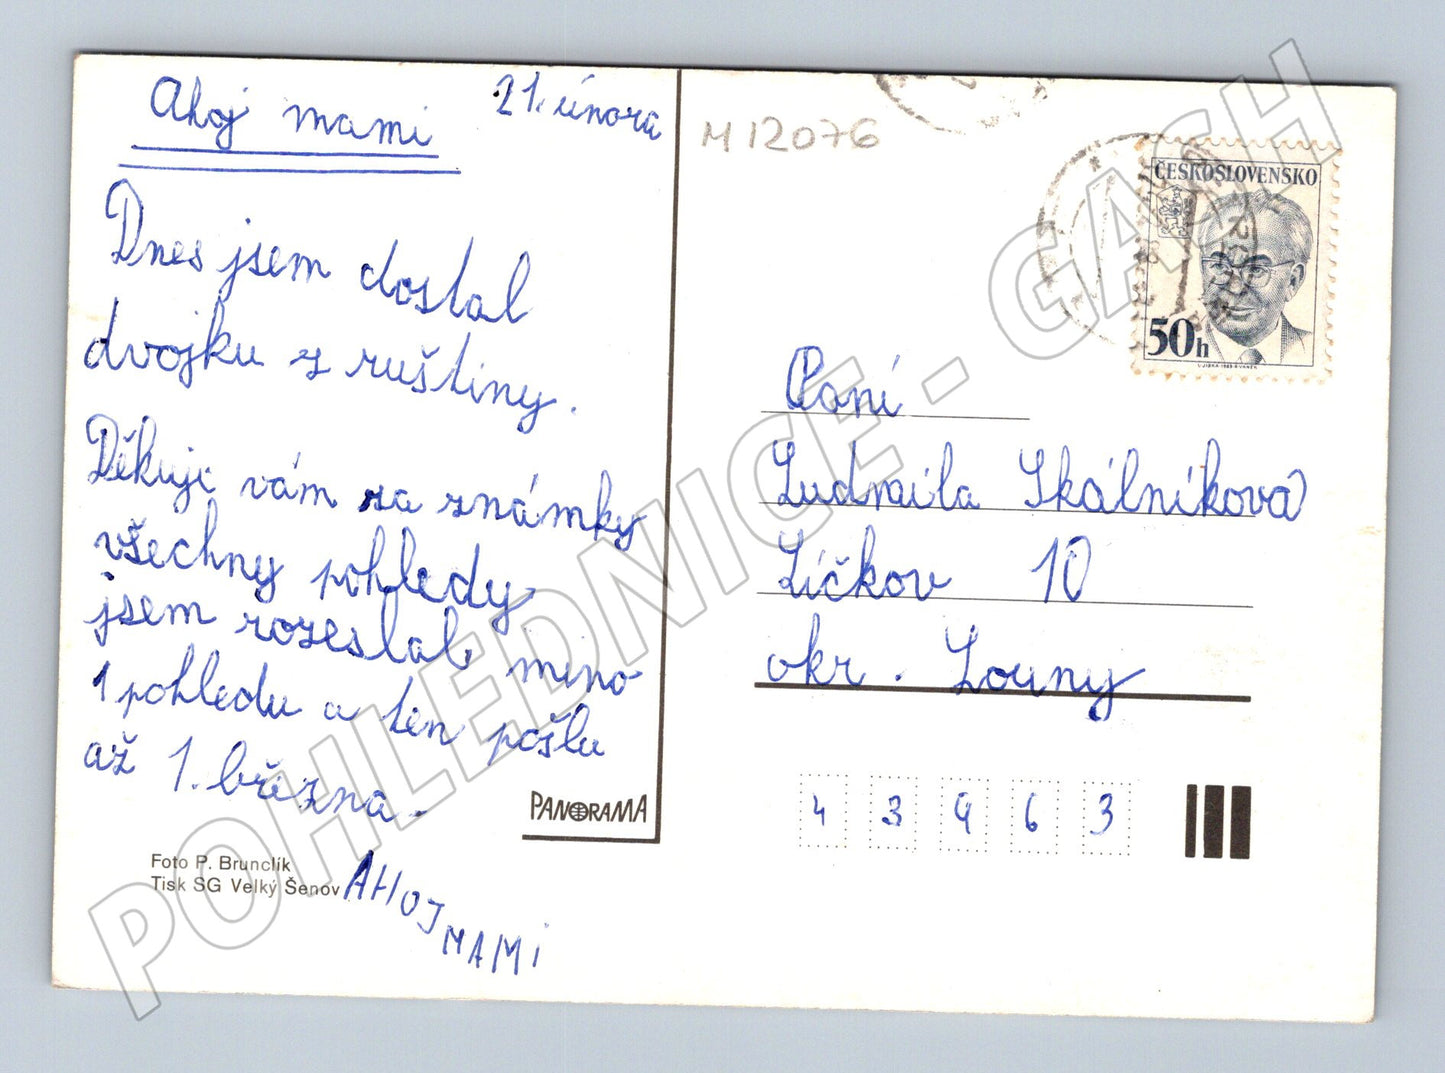 Ahoj mami
21. února
Dnes jsem dostal
dvojku z ruštiny.
Děkuji vám za známky
všechny pohledy
jsem rozeslal mino
1 pohledu a ten pošlu
až 1. března.
PANORAMA
Foto P. Brunclík
Tisk SG Velký Šenov
AHOJ MAMI
M 12076
ČESKOSLOVENSKO
50h
Paní
Ludmila Skálníková
Líčkov 10
okr. Louny
4 3 9 6 3
POHLEDNICE - GASH